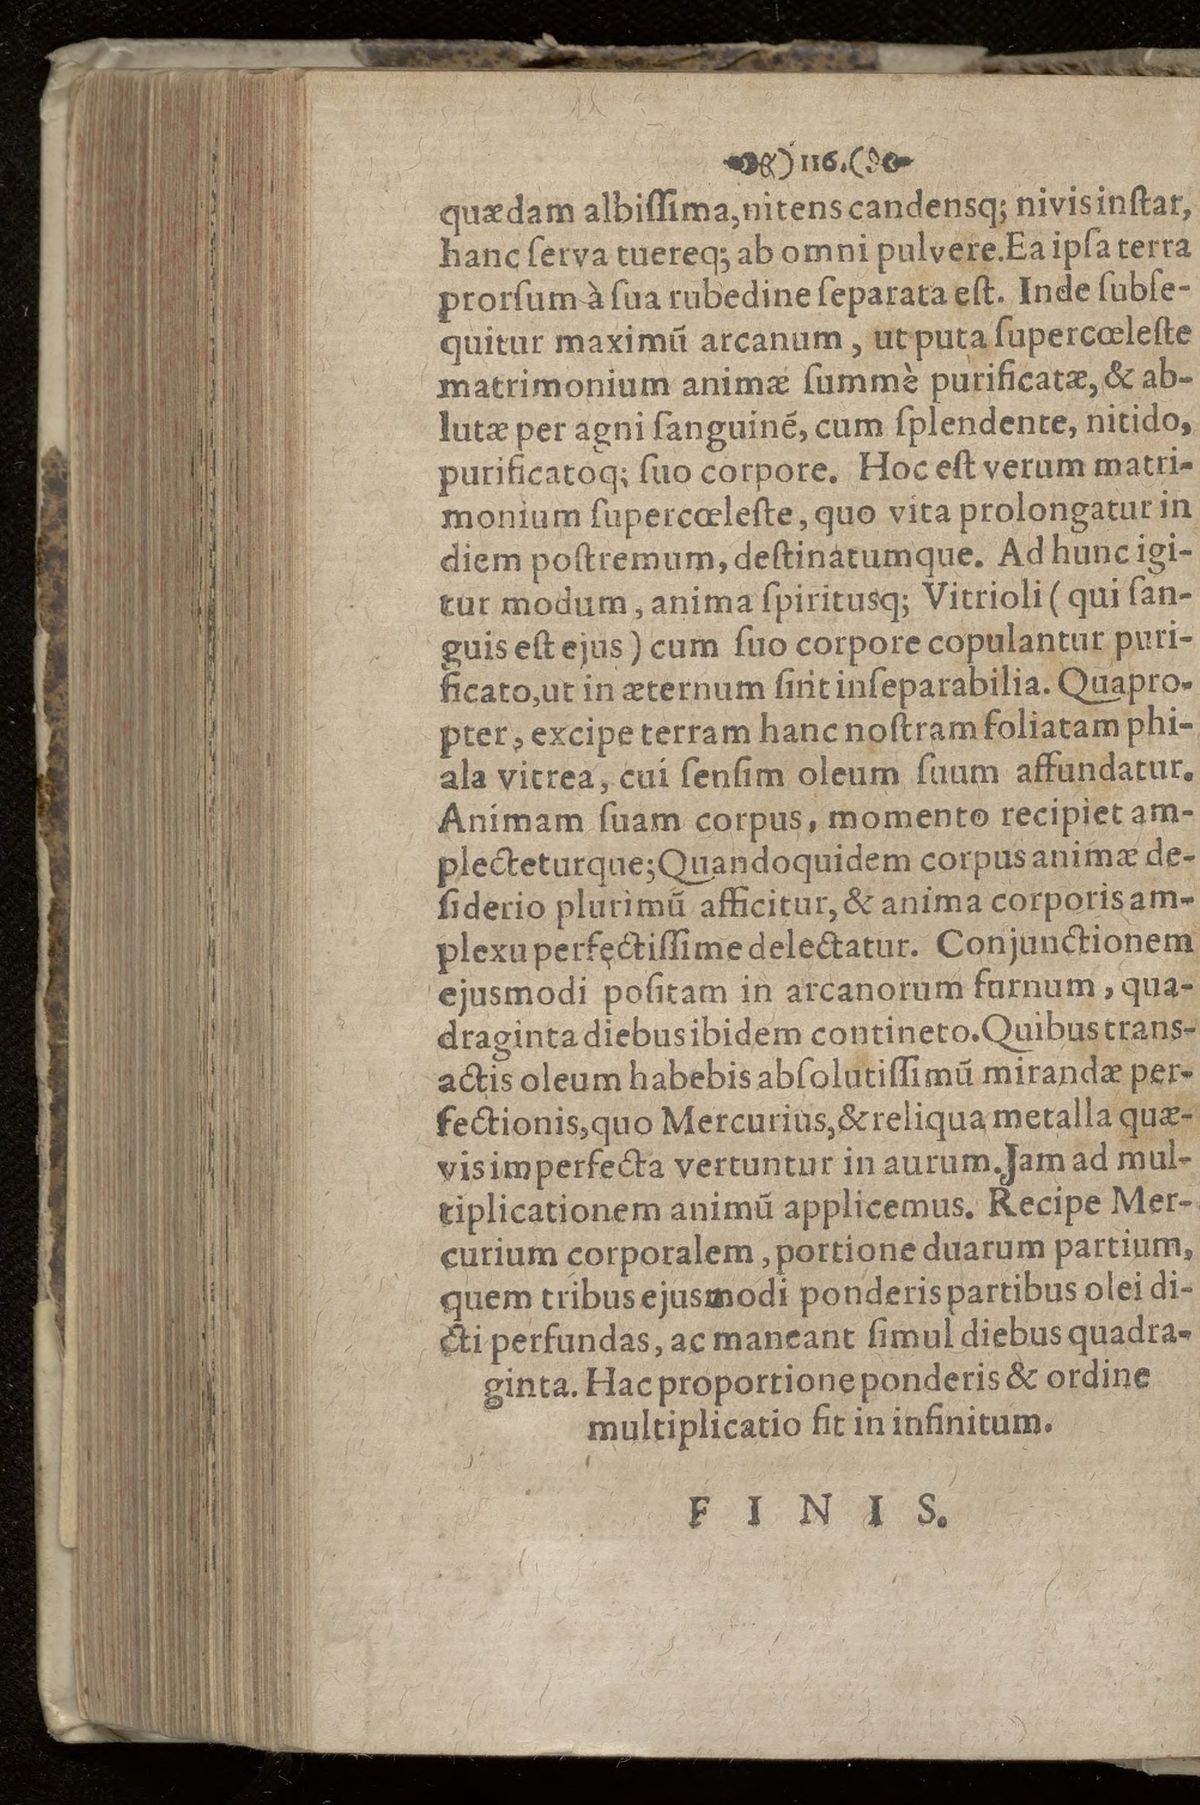 ) 116. (
quædam albiſſima, nitens candensq; nivis inſtar,
hanc ſerva tuereq; ab omni pulvere. Ea ipſa terra
prorſum à ſua rubedine ſeparata eſt. Inde ſubſe-
quitur maximũ arcanum, ut puta ſupercœleſte
matrimonium animæ ſummè purificatæ, & ab-
lutæ per agni ſanguinẽ, cum ſplendente, nitido,
purificatoq; ſuo corpore. Hoc eſt verum matri-
monium ſupercœleſte, quo vita prolongatur in
diem poſtremum, deſtinatumque. Ad hunc igi-
tur modum, anima ſpiritusq; Vitrioli ( qui ſan-
guis eſt ejus ) cum ſuo corpore copulantur puri-
ficato, ut in æternum ſint inſeparabilia. Quapro-
pter, excipe terram hanc noſtram foliatam phi-
ala vitrea, cui ſenſim oleum ſuum affundatur.
Animam ſuam corpus, momento recipiet am-
plecteturque; Quandoquidem corpus animæ de-
ſiderio plurimũ afficitur, & anima corporis am-
plexu perfectiſſime delectatur. Conjunctionem
ejusmodi poſitam in arcanorum furnum, qua-
draginta diebus ibidem contineto. Quibus trans-
actis oleum habebis abſolutiſſimũ mirandæ per-
fectionis, quo Mercurius, & reliqua metalla quæ-
vis imperfecta vertuntur in aurum. Jam ad mul-
tiplicationem animũ applicemus. Recipe Mer-
curium corporalem, portione duarum partium,
quem tribus ejusmodi ponderis partibus olei di-
cti perfundas, ac maneant ſimul diebus quadra-
ginta. Hac proportione ponderis & ordine
multiplicatio fit in infinitum.
F I N I S.